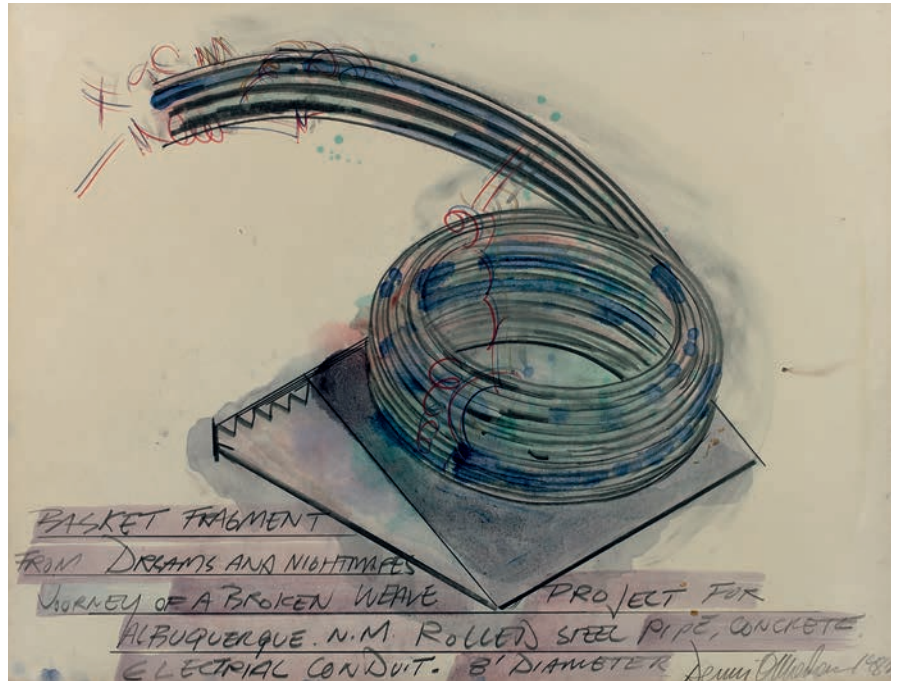 BASKET FRAGMENT
FROM DREAMS AND NIGHTMARES
JORNEY OF A BROKEN WEAVE PROJECT FOR
ALBUQUERQUE. N.M. ROLLED STEEL PIPE, CONCRETE
ELECTRIAL CONDUIT. 8' DIAMETER Dennis Oppenheim